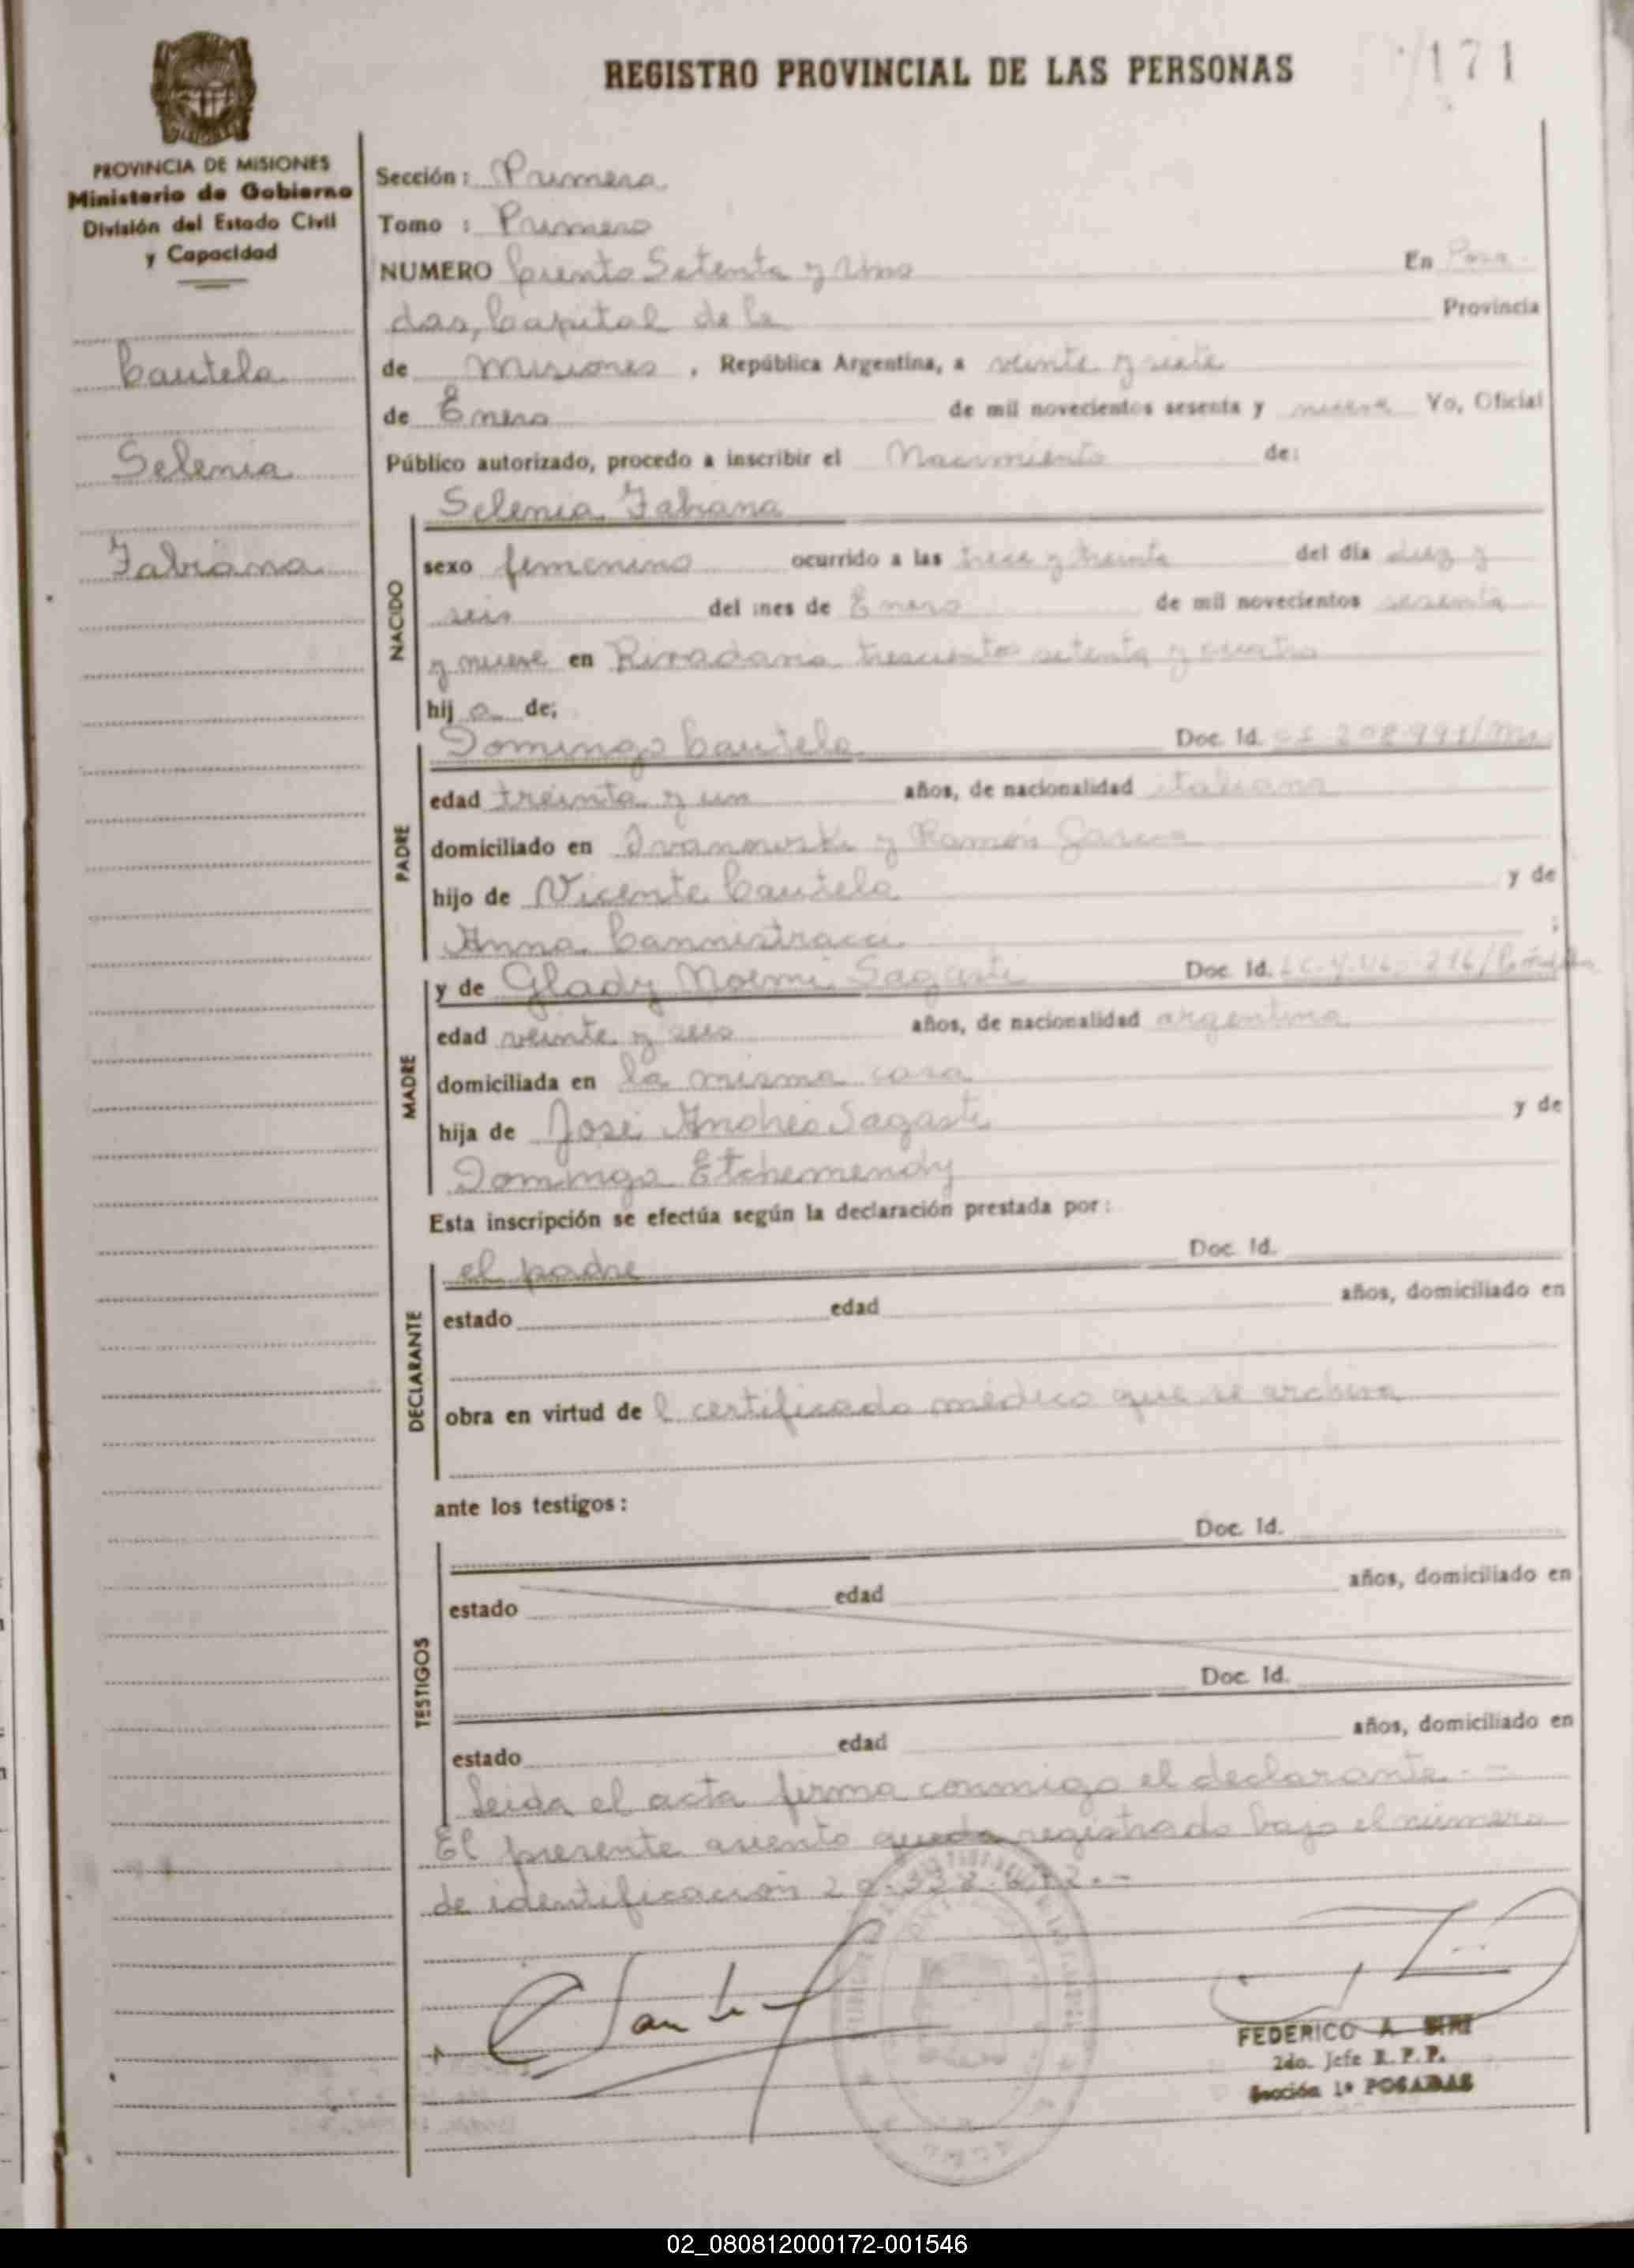 REGISTRO PROVINCIAL DE LAS PERSONAS
171
PROVINCIA DE MISIONES
Ministerio de Gobierno
División del Estado Civil
y Capacidad
Cautela
Selenia
Fabiana
Sección: Primera
Tomo : Primero
NUMERO Ciento Setenta y Uno En Posa
das, Capital de la Provincia
de Misiones, República Argentina, a veinte y siete
de Enero de mil novecientos sesenta y nueve Yo, Oficial
Público autorizado, procedo a inscribir el Nacimiento de:
NACIDO
Selenia Fabiana
sexo femenino ocurrido a las trece y treinta del día diez y
seis del mes de Enero de mil novecientos sesenta
y nueve en Rivadavia trescientos setenta y cuatro
hij a de;
PADRE
Domingo Cautela Doc. Id.
edad treinta y un años, de nacionalidad italiana
domiciliado en Ivanowski y Ramón García
hijo de Vicente Cautela y de
Anna Cannistracci ;
MADRE
y de Glady Noemi Sagasti Doc. Id.
edad veinte y seis años, de nacionalidad argentina
domiciliada en la misma casa
hija de José Andrés Sagasti y de
Dominga Etchemendy
Esta inscripción se efectúa según la declaración prestada por:
DECLARANTE
el padre Doc. Id.
estado edad años, domiciliado en
obra en virtud de l certificado médico que se archiva
ante los testigos:
TESTIGOS
Doc. Id.
estado edad años, domiciliado en
Doc. Id.
estado edad años, domiciliado en
Leida el acta firma conmigo el declarante.-
El presente asiento queda registrado bajo el número
de identificación
FEDERICO A. SIRI
2do. Jefe R.P.P.
Sección 1ª POSADAS
02_080812000172-001546